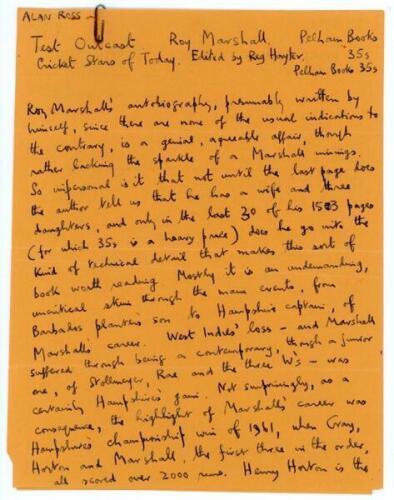 ALAN ROSS -
Test Outcast Roy Marshall. Pelham Books 35s
Cricket Stars of Today. Edited by Reg Hayter.
Pelham Books 35s
Roy Marshall's autobiography, presumably written by
himself, since there are none of the usual indications to
the contrary, is a genial, agreeable affair, though
rather lacking the sparkle of a Marshall innings.
So impersonal is it that not until the last page does
the author tell us that he has a wife and three
daughters, and only in the last 30 of his 153 pages
(for which 35s is a heavy price) does he go into the
kind of technical detail that makes this sort of
book worth reading. Mostly it is an undemanding,
uncritical skim through the main events, from
Barbados planter's son to Hampshire captain, of
Marshall's career. West Indies' loss - and Marshall
suffered through being a contemporary, though a junior
one, of Stollmeyer, Rae and the three W's - was
certainly Hampshire's gain. Not surprisingly, as a
consequence, the highlight of Marshall's career was
Hampshire's championship win of 1961, when Gray,
Horton and Marshall, the first three in the order,
all scored over 2000 runs. Henry Horton is the